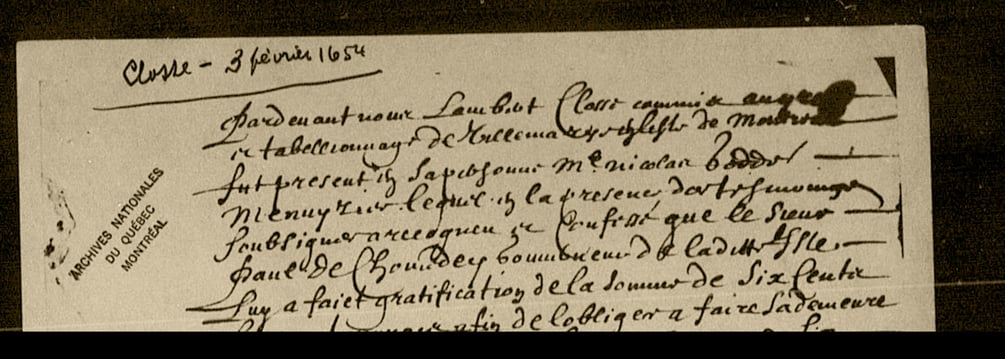 Closse - 3 février 1654
ARCHIVES NATIONALES
DU QUÉBEC
MONTRÉAL
Pardevant nous Lambert Closse commis au greffe
et tabellionnage de Villemarye en lisle de Montreal
fut present en sa personne Me. nicolas Godde
Menuyzier lequel en la presence des tesmoings
soubsignes a recogneu et Confessé que le Sieur
Paul de Chomedey Gouverneur de laditte Isle
luy a faict gratification de la somme de Six Cents
afin de lobliger a faire sa demeure